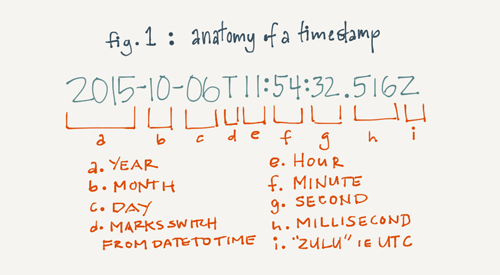 fig. 1 : anatomy of a timestamp
2015-10-06T11:54:32.516Z
a b c d e f g h i
a. YEAR
b. MONTH
c. DAY
d. MARKS SWITCH
FROM DATE TO TIME
e. HOUR
f. MINUTE
g. SECOND
h. MILLISECOND
i. "ZULU" IE UTC